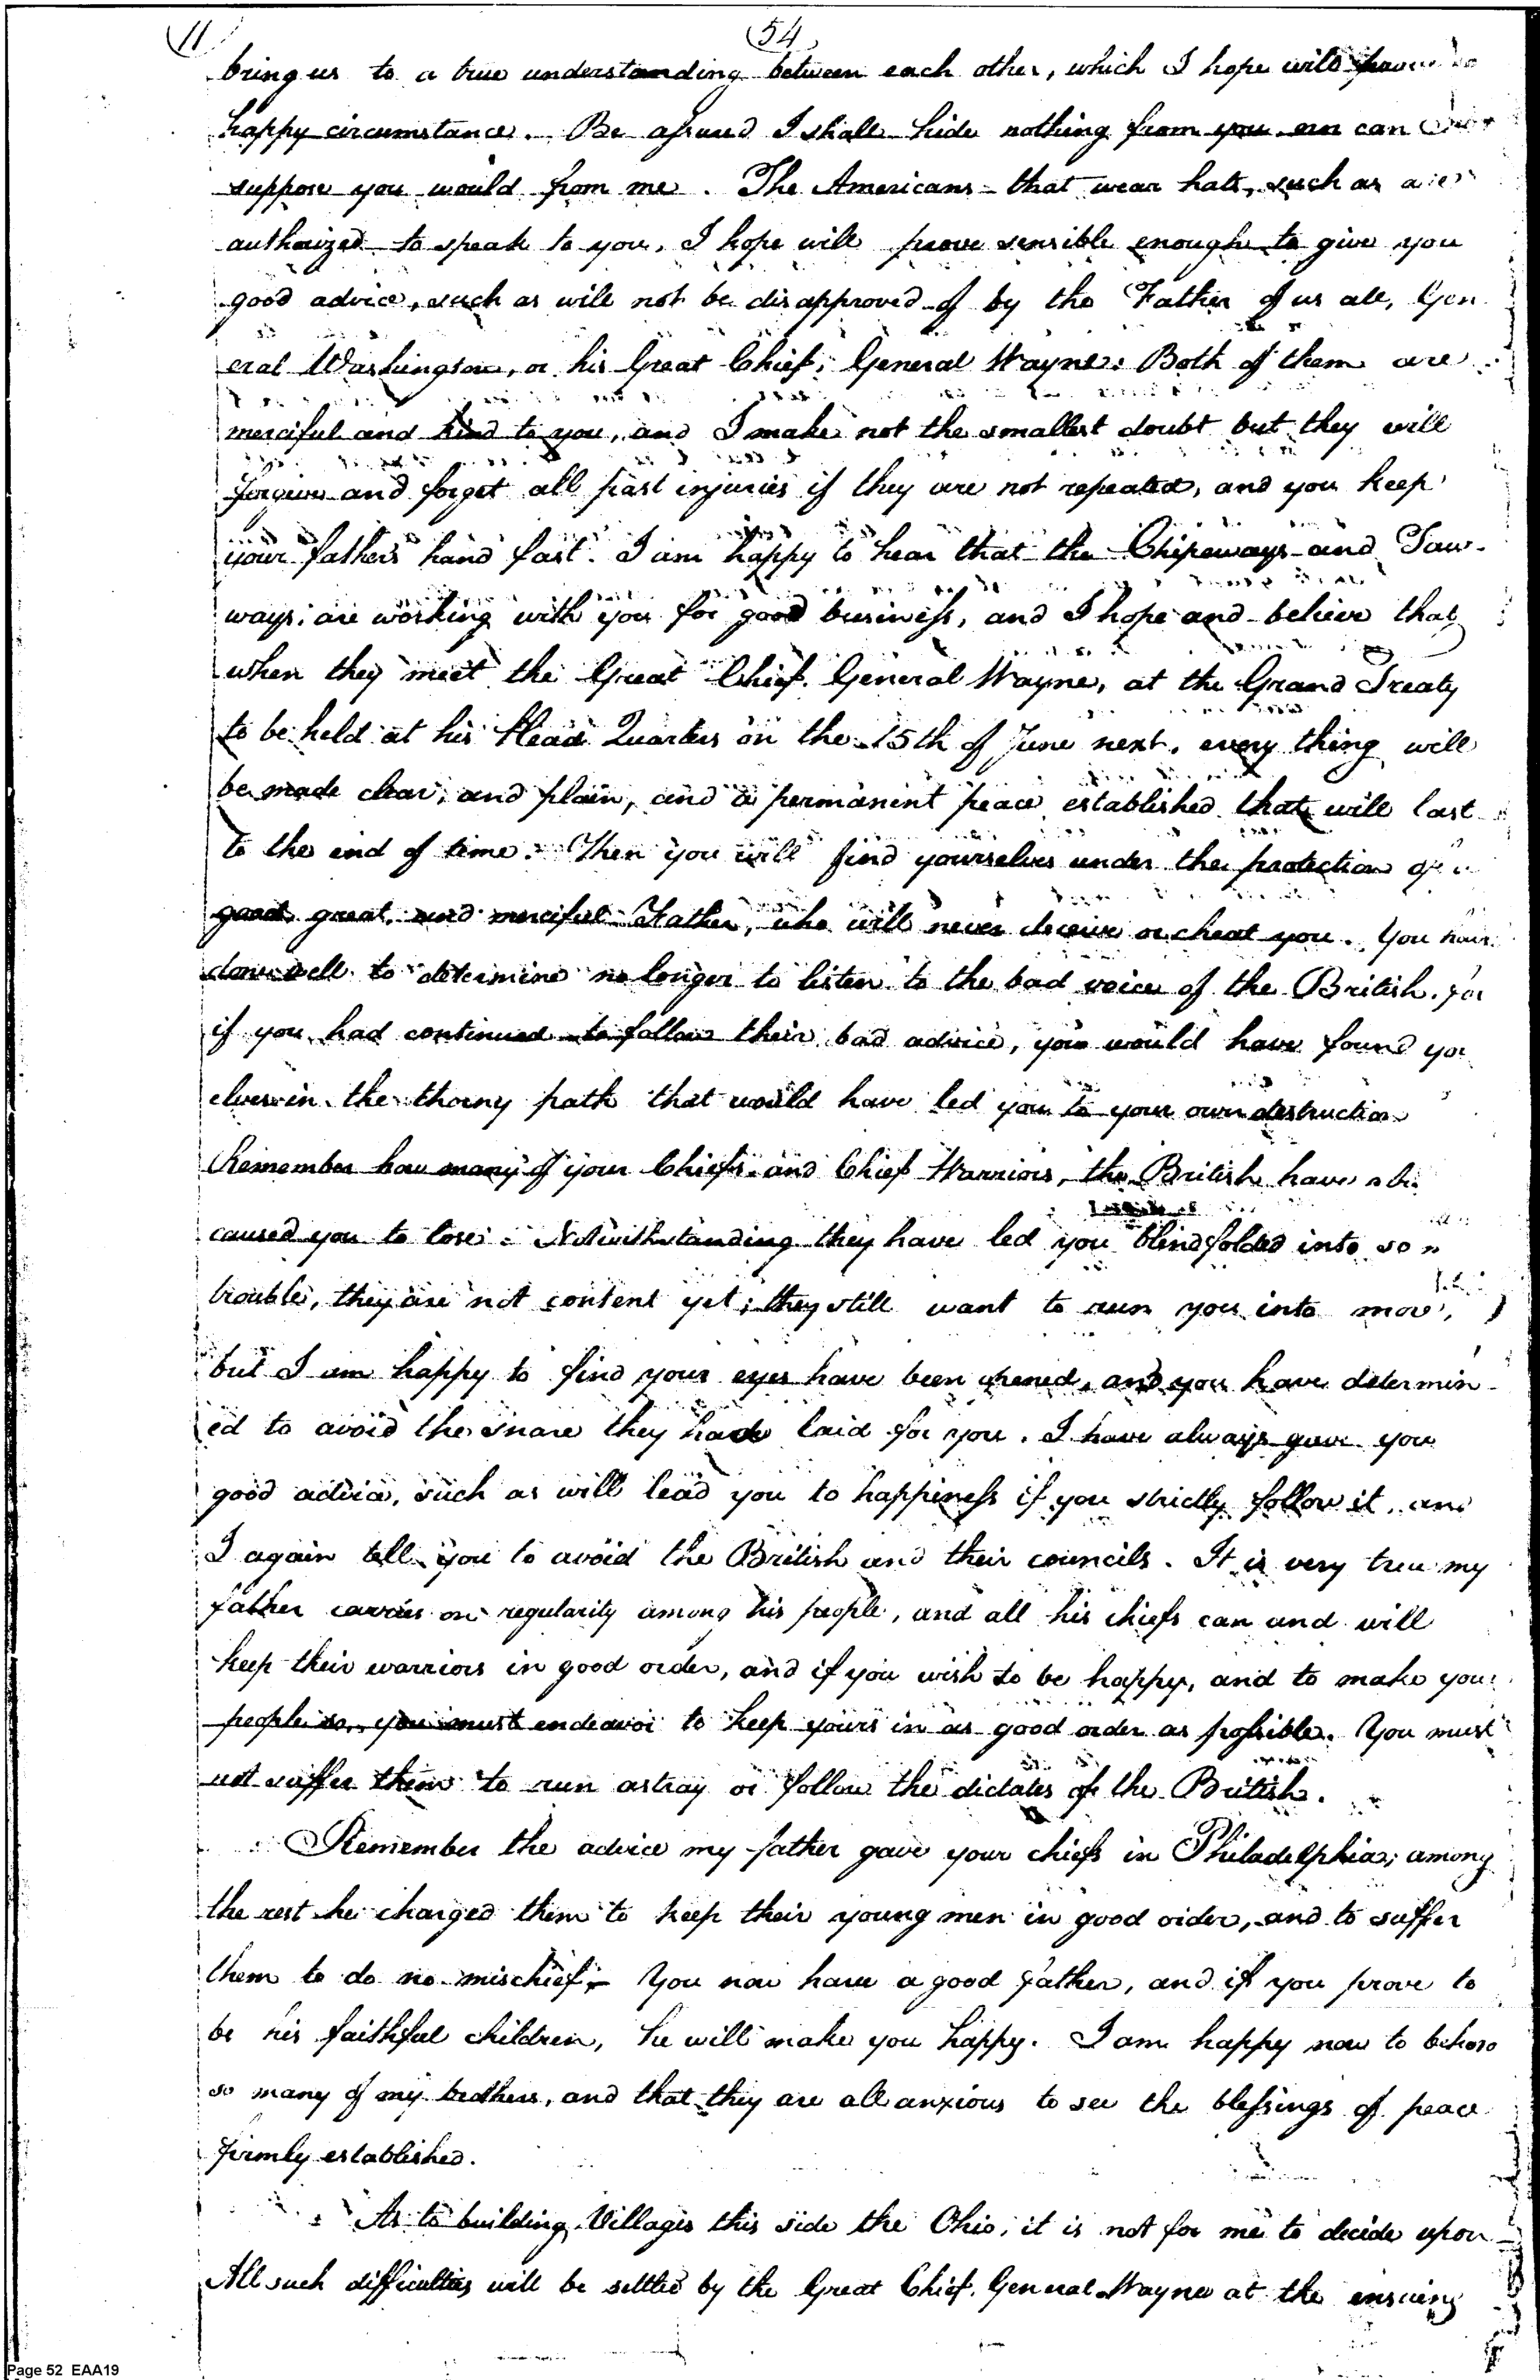 11 54
bring us to a true understanding between each other, which I hope will prove
happy circumstance. Be assured I shall hide nothing from you can
suppose you would from me. The Americans that wear hats, such as are
authorized to speak to you, I hope will prove sensible enough to give you
good advice, such as will not be disapproved of by the Father of us all, Gen
eral Washington, or his Great Chief, General Wayne. Both of them are
merciful and kind to you, and I make not the smallest doubt but they will
forgive and forget all past injuries if they are not repeated, and you keep
your father's hand fast. I am happy to hear that the Chipeways and Taw-
ways, are working with you for good business, and I hope and believe that
when they meet the Great Chief, General Wayne, at the Grand Treaty
to be held at his Head Quarters on the 15th of June next, every thing will
be made clear, and plain, and a permanent peace established that will last
to the end of time. Then you will find yourselves under the protection of a
good, great, and merciful Father, who will never deceive or cheat you. You have
done well to determine no longer to listen to the bad voice of the British, for
if you had continued to follow their bad advice, you would have found you
elves in the thorny path that would have led you to your own destruction
Remember how many of your Chiefs and Chief Warriors, the British have
caused you to lose. Notwithstanding they have led you blindfolded into so
trouble, they are not content yet; they still want to run you into more,
but I am happy to find your eyes have been opened, and you have determin-
ed to avoid the snare they have laid for you. I have always gave you
good advice, such as will lead you to happiness if you strictly follow it, and
I again tell you to avoid the British and their councils. It is very true my
father carries on regularity among his people, and all his chiefs can and will
keep their warriors in good order, and if you wish to be happy, and to make your
people so, you must endeavor to keep yours in as good order as possible. You must
not suffer them to run astray or follow the dictates of the British.
Remember the advice my father gave your chiefs in Philadelphia; among
the rest he charged them to keep their young men in good order, and to suffer
them to do no mischief. You now have a good father, and if you prove to
be his faithful children, he will make you happy. I am happy now to behold
so many of my brothers, and that they are all anxious to see the blessings of peace
firmly established.
As to building Villages this side the Ohio, it is not for me to decide upon
All such difficulties will be settled by the Great Chief, General Wayne at the ensuing
Page 52 EAA19